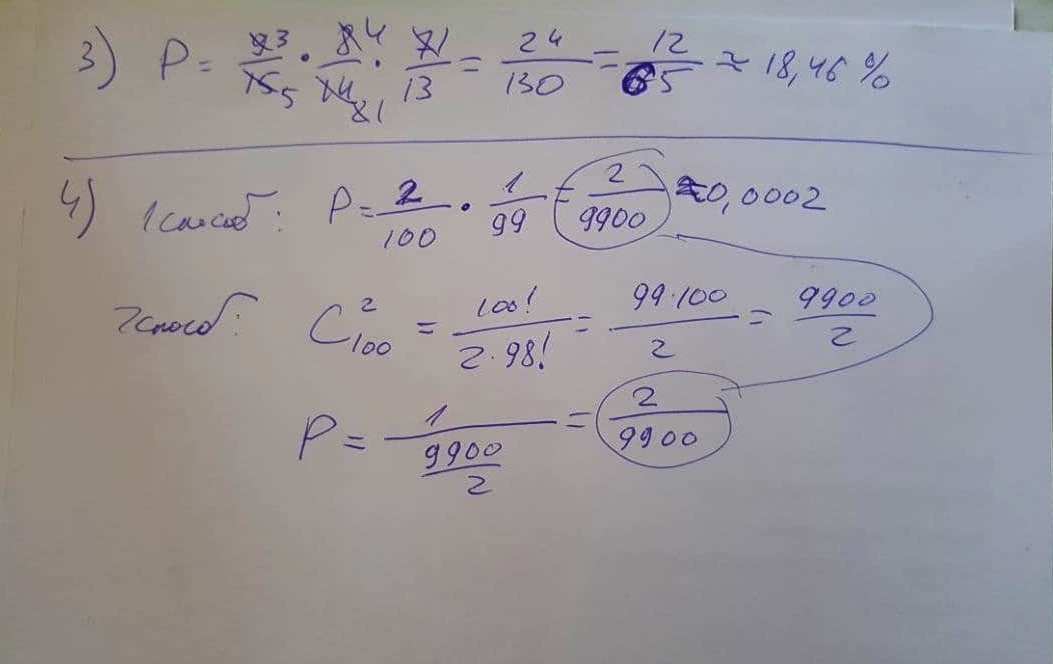 3) P = 9̶3/1̶5̶5 · 8̶4/1̶4̶2̶1 · 7̶1/13 = 24/130 = 12/65 ≈ 18,46 %
4) 1 способ: P = 2/100 · 1/99 = 2/9900 ≈ 0,0002
2 способ: C²₁₀₀ = 100!/2·98! = 99·100/2 = 9900/2
P = 1/(9900/2) = 2/9900